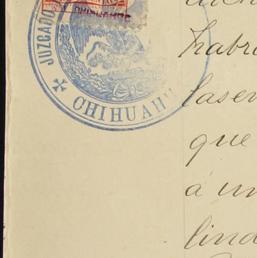 JUZGADO
CHIHUAHU
habri
laser
que
a un
lind